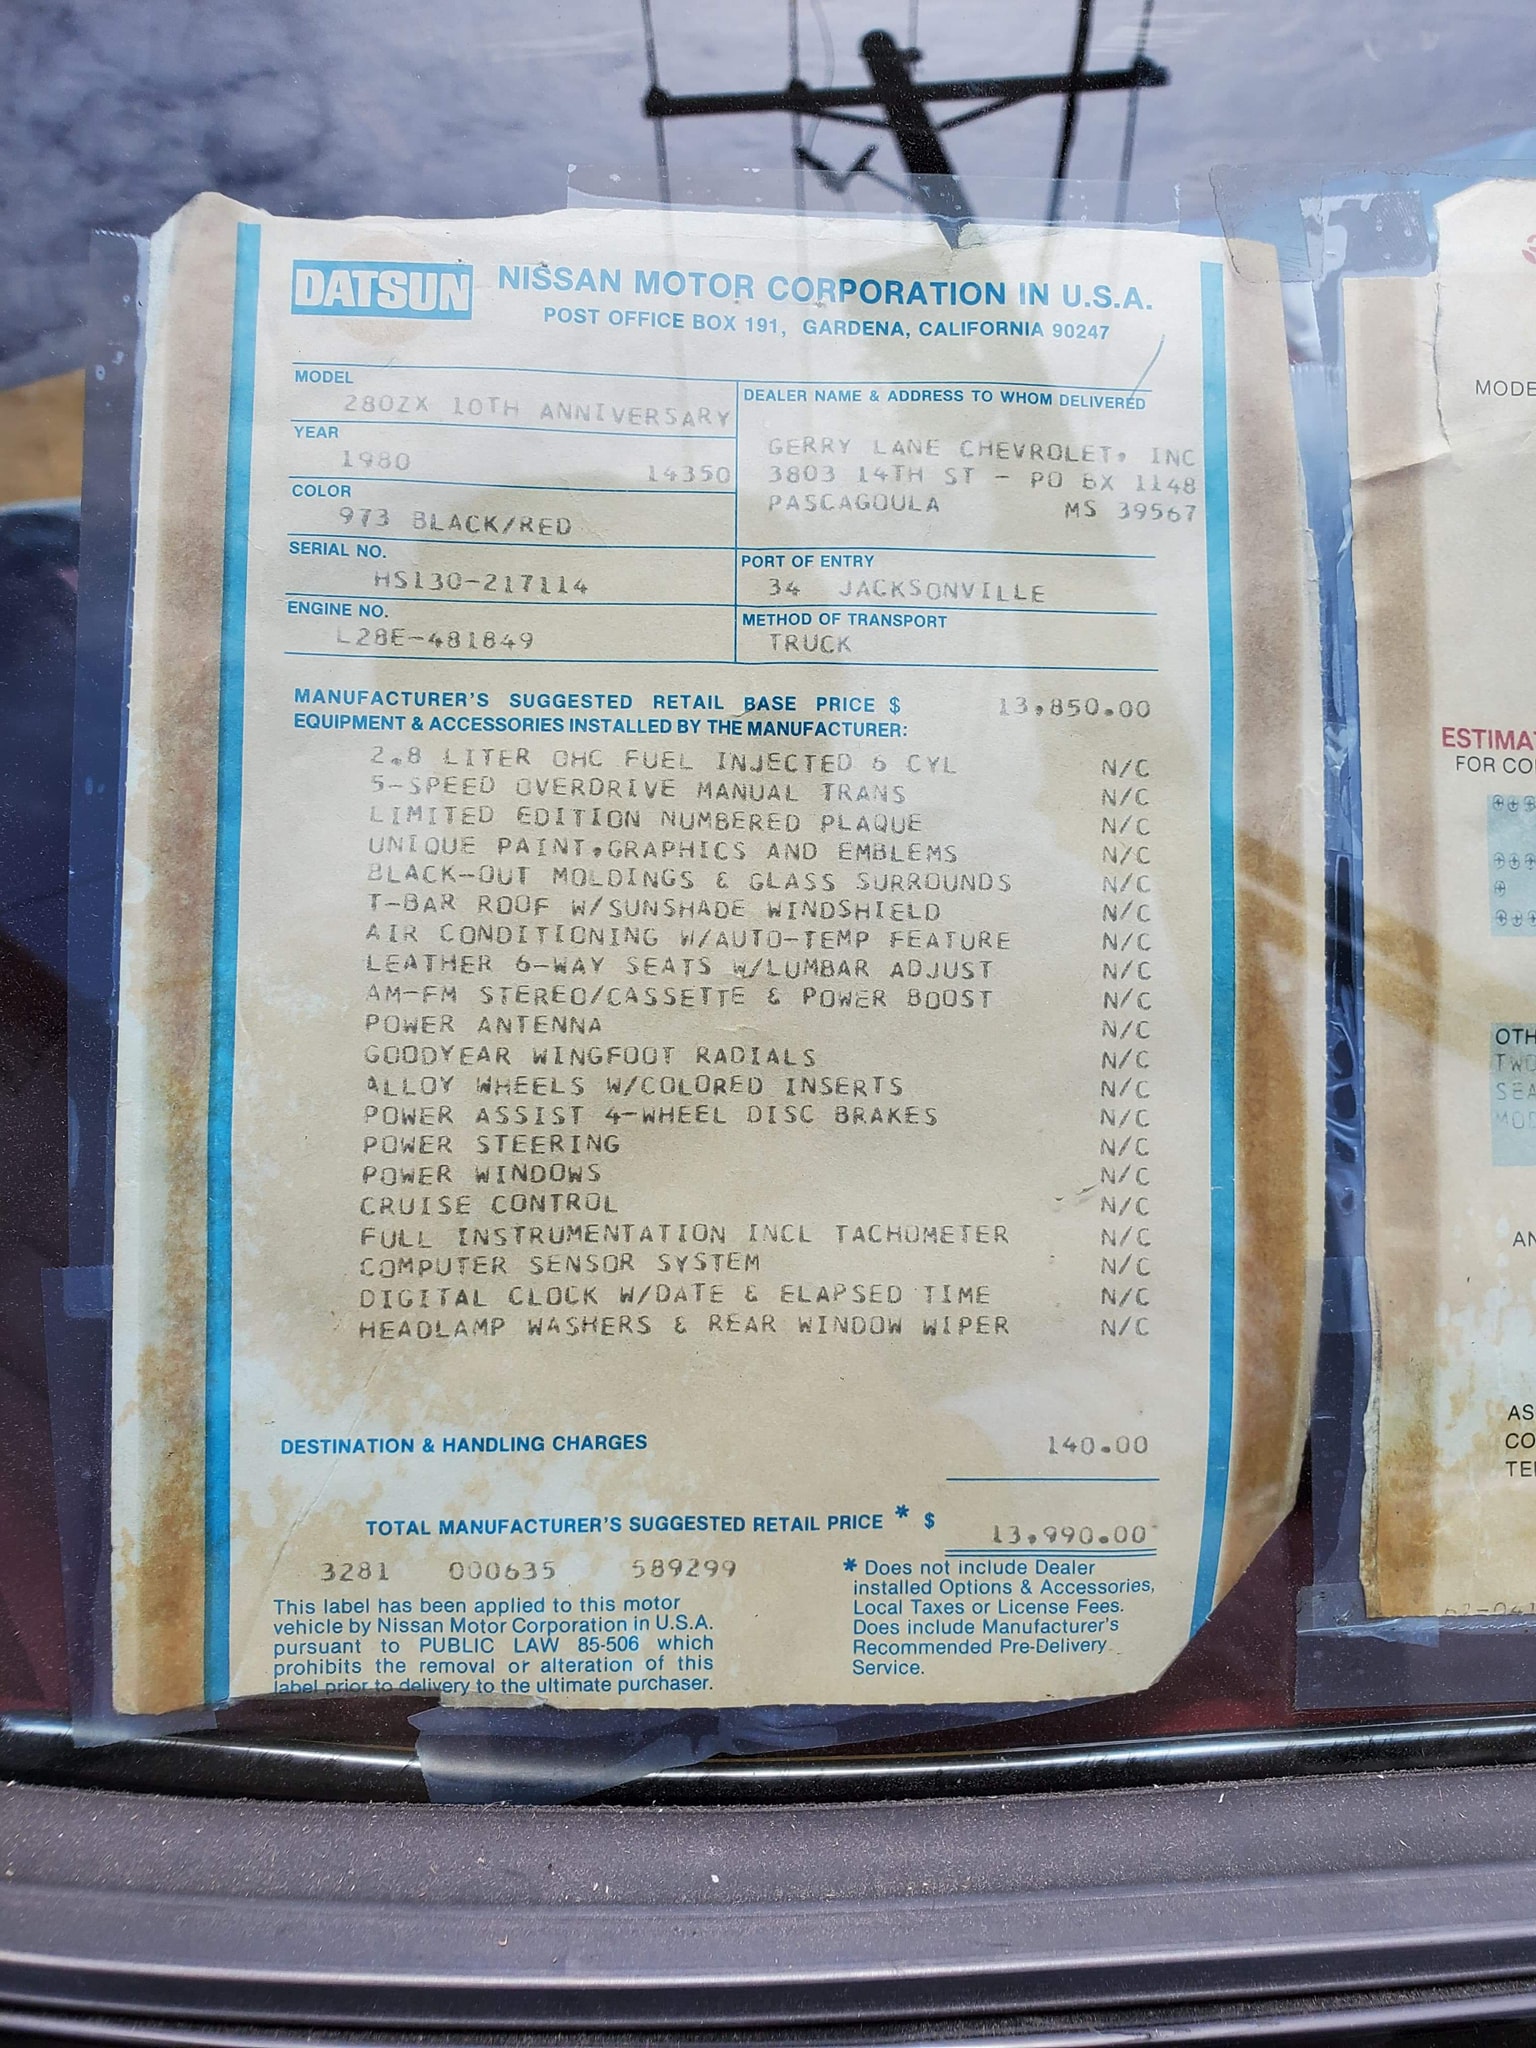 DATSUN NISSAN MOTOR CORPORATION IN U.S.A.
POST OFFICE BOX 191, GARDENA, CALIFORNIA 90247
MODEL
280ZX 10TH ANNIVERSARY
YEAR
1980 14350
COLOR
973 BLACK/RED
SERIAL NO.
HS130-217114
ENGINE NO.
L28E-481849
DEALER NAME & ADDRESS TO WHOM DELIVERED
GERRY LANE CHEVROLET, INC
3803 14TH ST - PO BX 1148
PASCAGOULA MS 39567
PORT OF ENTRY
34 JACKSONVILLE
METHOD OF TRANSPORT
TRUCK
MANUFACTURER'S SUGGESTED RETAIL BASE PRICE $ 13,850.00
EQUIPMENT & ACCESSORIES INSTALLED BY THE MANUFACTURER:
2.8 LITER OHC FUEL INJECTED 6 CYL N/C
5-SPEED OVERDRIVE MANUAL TRANS N/C
LIMITED EDITION NUMBERED PLAQUE N/C
UNIQUE PAINT,GRAPHICS AND EMBLEMS N/C
BLACK-OUT MOLDINGS & GLASS SURROUNDS N/C
T-BAR ROOF W/SUNSHADE WINDSHIELD N/C
AIR CONDITIONING W/AUTO-TEMP FEATURE N/C
LEATHER 6-WAY SEATS W/LUMBAR ADJUST N/C
AM-FM STEREO/CASSETTE & POWER BOOST N/C
POWER ANTENNA N/C
GOODYEAR WINGFOOT RADIALS N/C
ALLOY WHEELS W/COLORED INSERTS N/C
POWER ASSIST 4-WHEEL DISC BRAKES N/C
POWER STEERING N/C
POWER WINDOWS N/C
CRUISE CONTROL N/C
FULL INSTRUMENTATION INCL TACHOMETER N/C
COMPUTER SENSOR SYSTEM N/C
DIGITAL CLOCK W/DATE & ELAPSED TIME N/C
HEADLAMP WASHERS & REAR WINDOW WIPER N/C
DESTINATION & HANDLING CHARGES 140.00
TOTAL MANUFACTURER'S SUGGESTED RETAIL PRICE * $ 13,990.00
3281 000635 589299
This label has been applied to this motor
vehicle by Nissan Motor Corporation in U.S.A.
pursuant to PUBLIC LAW 85-506 which
prohibits the removal or alteration of this
label prior to delivery to the ultimate purchaser.
* Does not include Dealer
installed Options & Accessories,
Local Taxes or License Fees.
Does include Manufacturer's
Recommended Pre-Delivery
Service.
MODE
ESTIMA
FOR CO
OTH
TWO
SEA
MOD
AN
AS
CO
TE